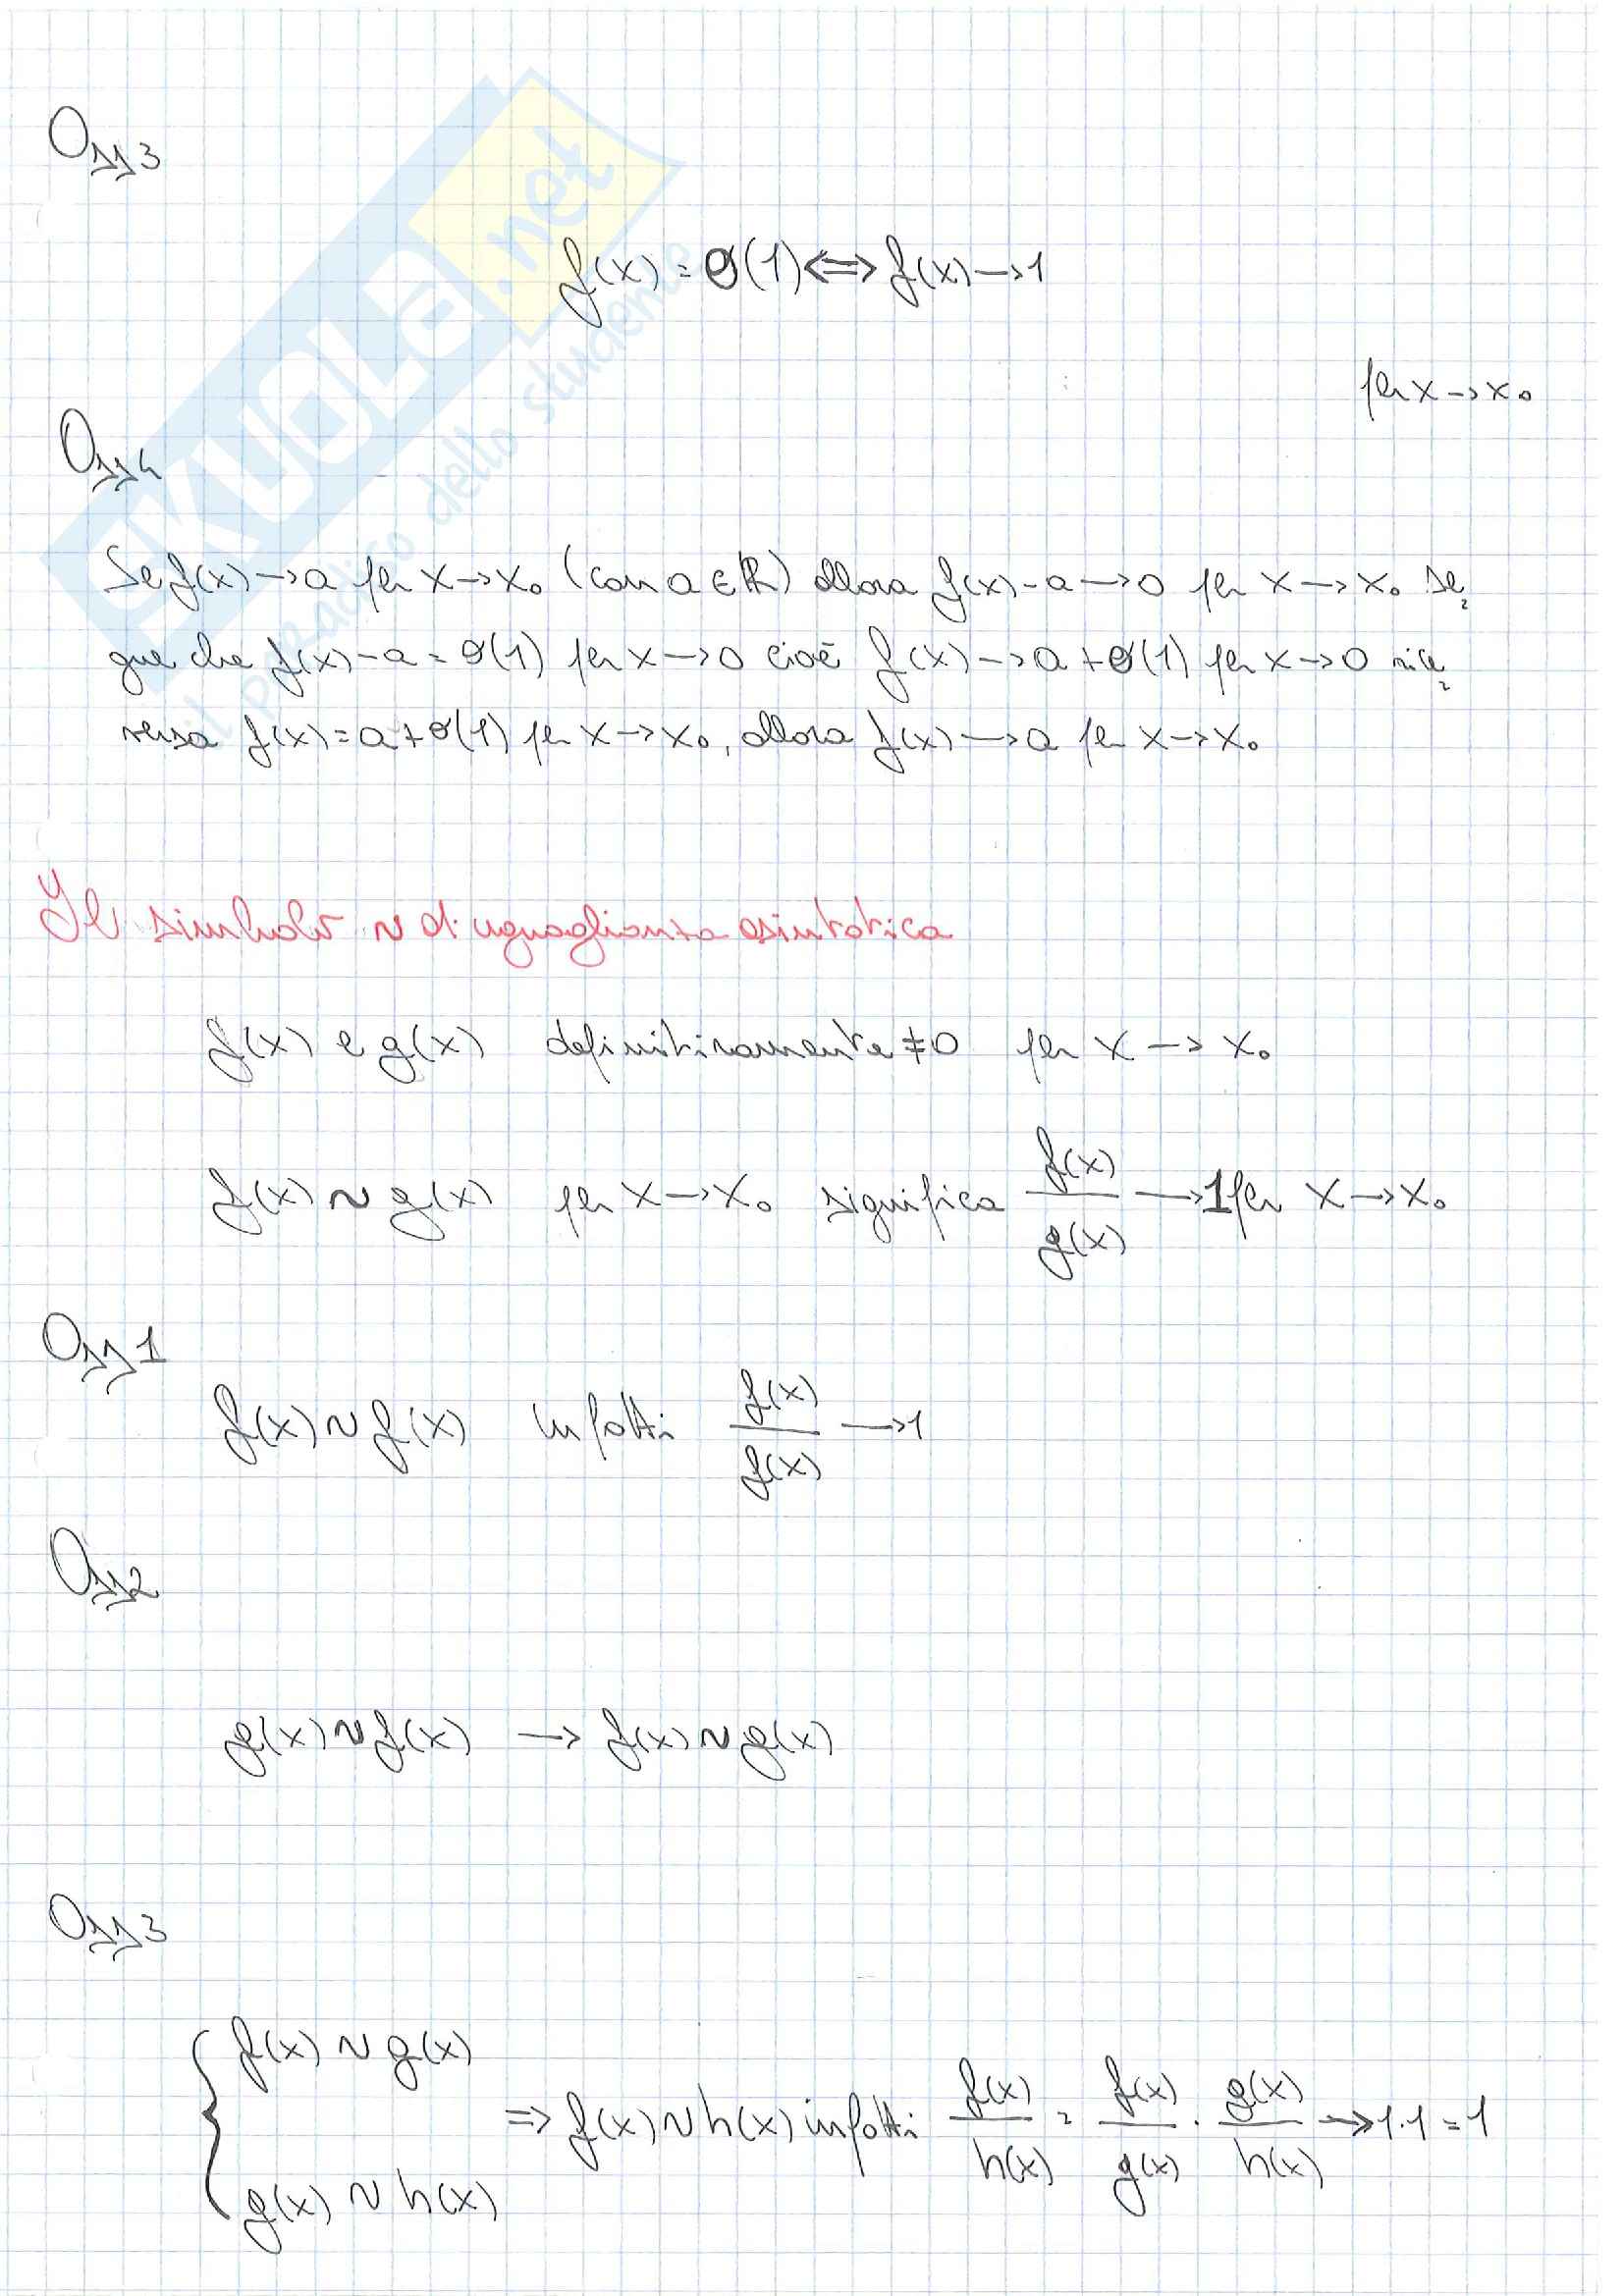 Oss 3
f(x) = o(1) <=> f(x) → 1
per x → x₀
Oss 4
Se f(x) → a per x → x₀ (con a ∈ ℝ) allora f(x) - a → 0 per x → x₀ se
gue che f(x) - a = o(1) per x → 0 cioè f(x) → a + o(1) per x → 0 vice
versa f(x) = a + o(1) per x → x₀, allora f(x) → a per x → x₀
Il simbolo ~ di uguaglianza asintotica
f(x) e g(x) definitivamente ≠ 0 per x → x₀
f(x) ~ g(x) per x → x₀ significa f(x)/g(x) → 1 per x → x₀
Oss 1
f(x) ~ f(x) infatti f(x)/f(x) → 1
Oss 2
g(x) ~ f(x) → f(x) ~ g(x)
Oss 3
{ f(x) ~ g(x)
g(x) ~ h(x)
=> f(x) ~ h(x) infatti f(x)/h(x) = f(x)/g(x) · g(x)/h(x) → 1·1 = 1
SKUOLA.net
il paradiso dello studente